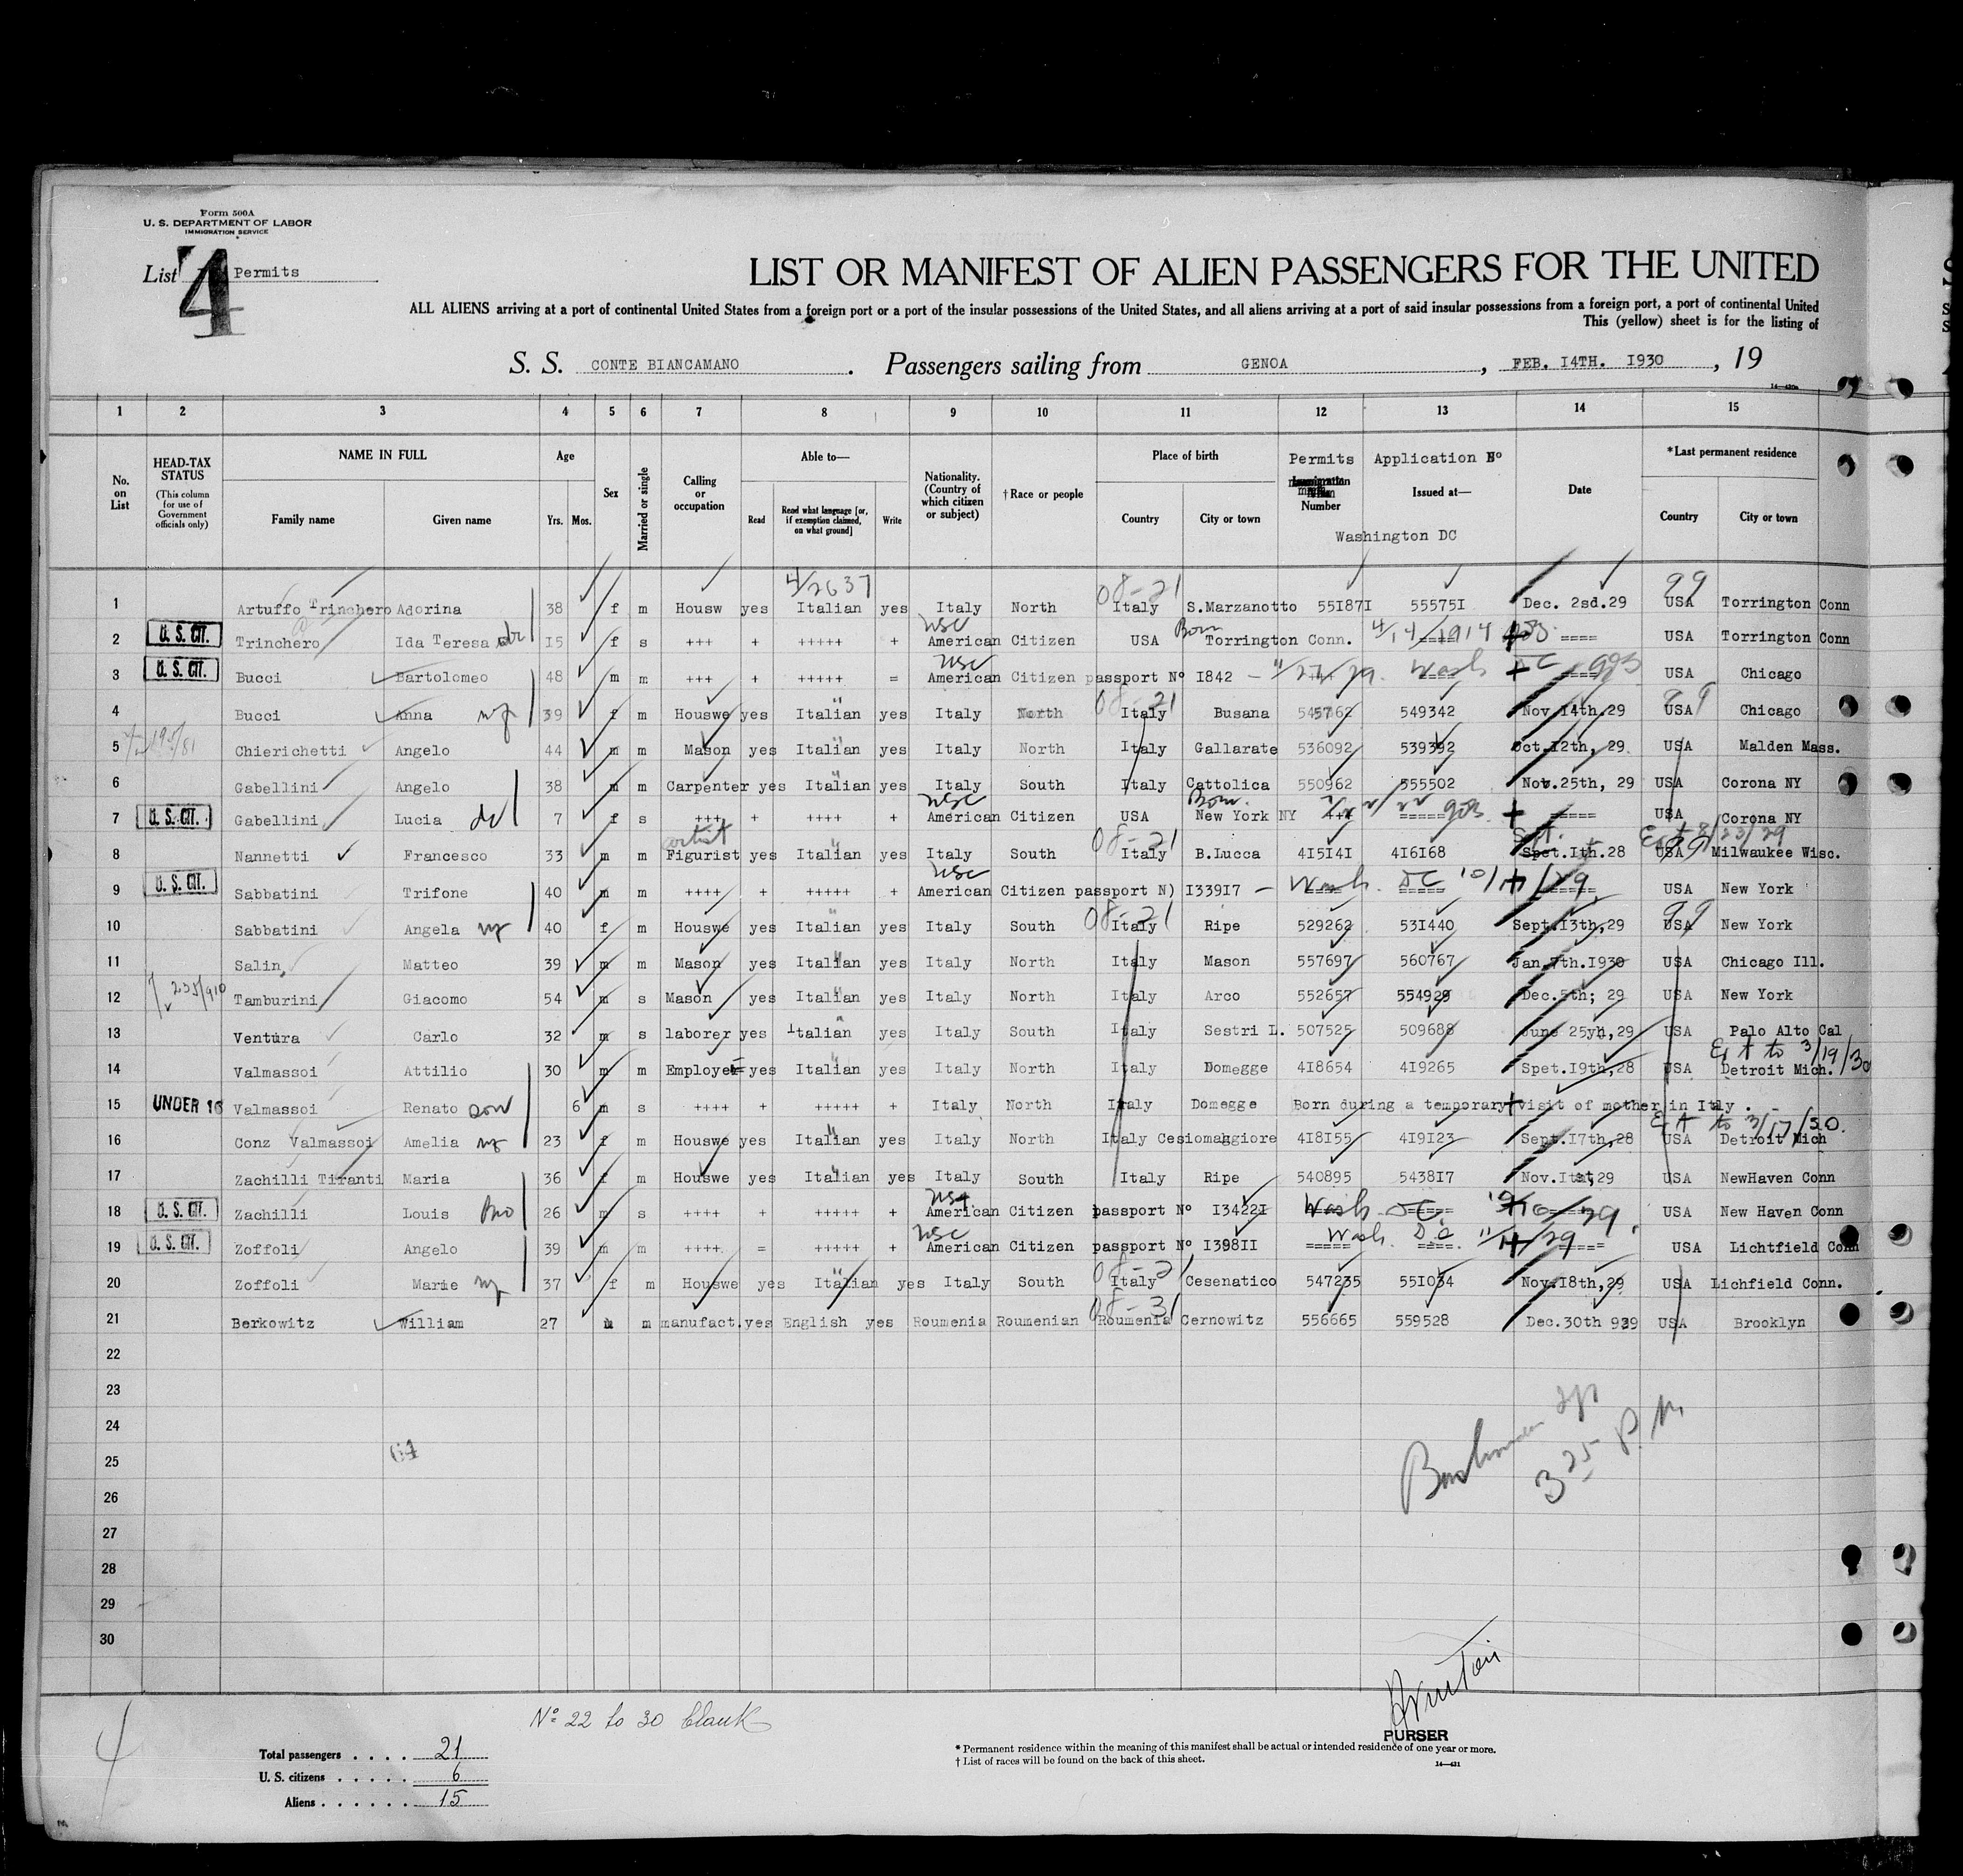 Form 500A
U. S. DEPARTMENT OF LABOR
IMMIGRATION SERVICE
List 4 Permits
LIST OR MANIFEST OF ALIEN PASSENGERS FOR THE UNITED
ALL ALIENS arriving at a port of continental United States from a foreign port or a port of the insular possessions of the United States, and all aliens arriving at a port of said insular possessions from a foreign port, a port of continental United
This (yellow) sheet is for the listing of
S. S. CONTE BIANCAMANO . Passengers sailing from GENOA , FEB. I4TH. I930 , 19
1 2 3 4 5 6 7 8 9 10 11 12 13 14 15
No. on List
HEAD-TAX STATUS (This column for use of Government officials only)
NAME IN FULL Family name Given name
Age Yrs. Mos.
Sex
Married or single
Calling or occupation
Able to— Read Read what language [or, if exemption claimed, on what ground] Write
Nationality. (Country of which citizen or subject)
† Race or people
Place of birth Country City or town
Permits Number
Application Nº Issued at—
Washington DC
Date
* Last permanent residence Country City or town
4/2637 08-21 99
1 Artuffo Trinchero Adorina 38 f m Housw yes Italian yes Italy North Italy S.Marzanotto 55I87I 55575I Dec. 2sd.29 USA Torrington Conn
usc Born 4/14/1914
2 U. S. CIT. Trinchero Ida Teresa I5 f s +++ + +++++ + American Citizen USA Torrington Conn. ==== ==== USA Torrington Conn
usc
3 U. S. CIT. Bucci Bartolomeo 48 m m +++ + +++++ = American Citizen passport Nº I842 — 11/27/29. Wash DC USA Chicago
08-21
4 Bucci Anna wf 39 f m Houswe yes Italian yes Italy North Italy Busana 545762 549342 Nov I4th.29 USA Chicago
5 Chierichetti Angelo 44 m m Mason yes Italian yes Italy North Italy Gallarate 536092 539392 Oct.I2th, 29. USA Malden Mass.
6 Gabellini Angelo 38 m m Carpenter yes Italian yes Italy South Italy Cattolica 550962 555502 Nov.25th, 29 USA Corona NY
usc Born.
7 U. S. CIT. Gabellini Lucia 7 f s +++ + ++++ + American Citizen USA New York NY +++ ===== ===== USA Corona NY
artist 08-21 Sept. Ext 8/23/29
8 Nannetti Francesco 33 m m Figurist yes Italian yes Italy South Italy B.Lucca 4I5I4I 4I6I68 Spet.Ith.28 USA Milwaukee Wisc.
usc
9 U. S. CIT. Sabbatini Trifone 40 m m ++++ + +++++ + American Citizen passport N) I339I7 — Wash. DC USA New York
08-21 99
10 Sabbatini Angela wf 40 f m Houswe yes Italian yes Italy South Italy Ripe 529262 53I440 Sept.I3th,29 USA New York
11 Salin Matteo 39 m m Mason yes Italian yes Italy North Italy Mason 557697 560767 Jan.7th.I930 USA Chicago Ill.
12 Tamburini Giacomo 54 m s Mason yes Italian yes Italy North Italy Arco 552657 554929 Dec.5th; 29 USA New York
13 Ventura Carlo 32 m s laborer yes Italian yes Italy South Italy Sestri L. 507525 509688 June 25yh,29 USA Palo Alto Cal
Ext to 3/19/30
14 Valmassoi Attilio 30 m m Employe yes Italian yes Italy North Italy Domegge 4I8654 4I9265 Spet.I9th,28 USA Detroit Mich.
15 UNDER 16 Valmassoi Renato son 6 m s ++++ + +++++ + Italy North Italy Domegge Born during a temporary visit of mother in Itly .
Ext to 3/17/30.
16 Conz Valmassoi Amelia wf 23 f m Houswe yes Italian yes Italy North Italy Cesiomaggiore 4I8I55 4I9I23 Sept.I7th,28 USA Detroit Mich
17 Zachilli Tiranti Maria 36 f m Houswe yes Italian yes Italy South Italy Ripe 540895 5438I7 Nov.Ist,29 USA NewHaven Conn
18 U. S. CIT. Zachilli Louis Bro 26 m s ++++ + +++++ + American Citizen passport Nº I3422I Wash. DC. USA New Haven Conn
usc Wash. D.C.
19 U. S. CIT. Zoffoli Angelo 39 m m ++++ = +++++ + American Citizen passport Nº I398II ===== ==== ==== USA Lichtfield Conn
08-21
20 Zoffoli Marie wf 37 f m Houswe yes Italian yes Italy South Italy Cesenatico 547235 55I034 Nov.I8th,29 USA Lichfield Conn.
08-31
21 Berkowitz William 27 m m manufact.yes English yes Roumenia Roumenian Roumenia Cernowitz 556665 559528 Dec.30th 929 USA Brooklyn
22
23
24
25
26
27
28
29
30
3 25 P.M
Nº 22 to 30 blank
4
Total passengers . . . . 21
U. S. citizens . . . . . 6
Aliens . . . . . . 15
PURSER
* Permanent residence within the meaning of this manifest shall be actual or intended residence of one year or more.
† List of races will be found on the back of this sheet.
14—431